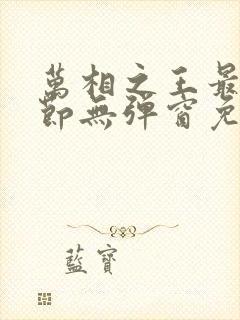 萬相之王最
節無彈窗免
藍寶